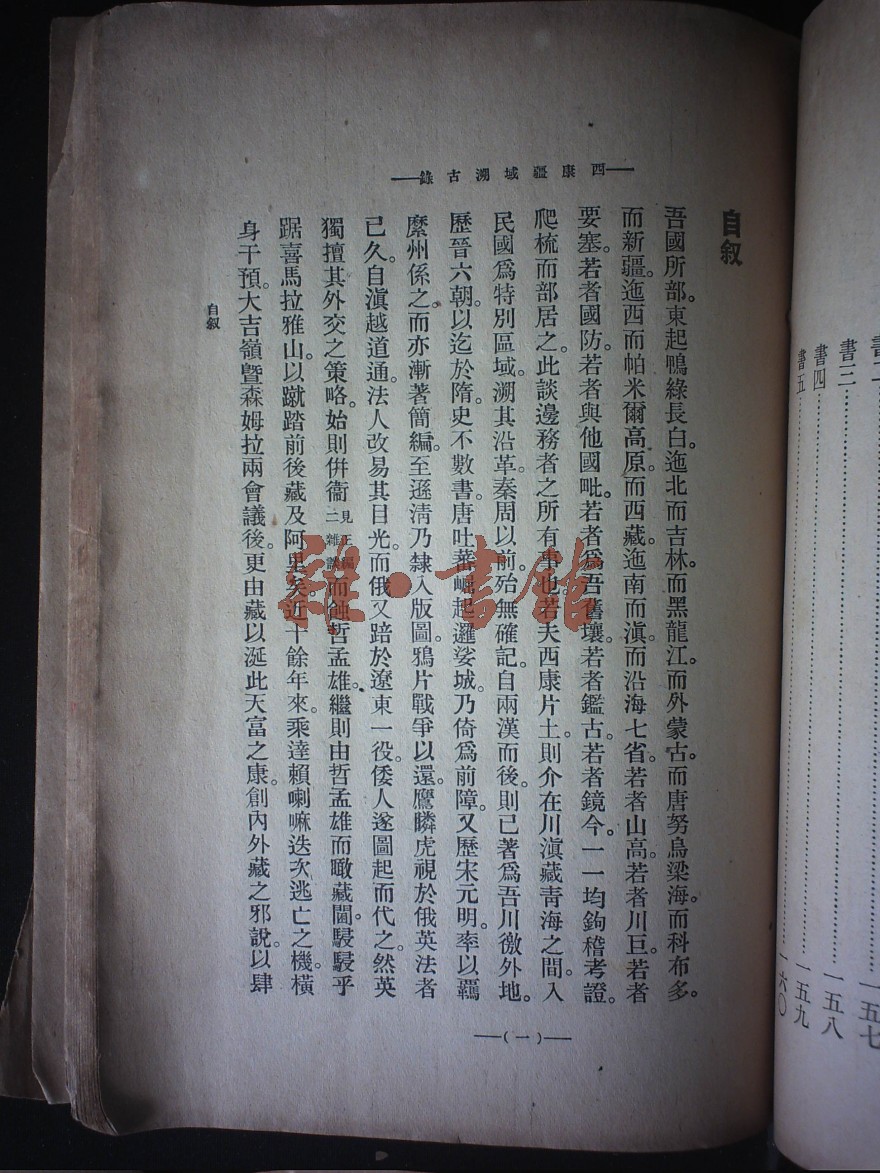 西康疆域溯古錄
自叙
吾國所部。東起鴨綠長白。迤北而吉林。而黑龍江。而外蒙古。而唐努烏梁海。而科布多。
而新疆。迤西而帕米爾高原。而西藏。迤南而滇。而沿海七省。若者山高。若者川巨。若者
要塞。若者國防。若者與他國毗。若者爲吾舊壤。若者鑑古。若者鏡今。一一均鉤稽考證。
爬梳而部居之。此談邊務者之所有事也。若夫西康片土。則介在川滇藏青海之間。入
民國爲特別區域。溯其沿革。秦周以前。殆無確記。自兩漢而後。則已著爲吾川徼外地。
歷晉六朝。以迄於隋。史不數書。唐吐蕃崛起邏娑城。乃倚爲前障。又歷宋元明。率以羈
縻州係之。而亦漸著簡編。至遜清乃隸入版圖。鴉片戰爭以還。鷹瞵虎視於俄英法者
已久。自滇越道通。法人改易其目光。而俄又踣於遼東一役。倭人遂圖起而代之。然英
獨擅其外交之策略。始則併衞見正編二雜談而蝕哲孟雄。繼則由哲孟雄而瞰藏闥。駸駸乎
踞喜馬拉雅山。以蹴踏前後藏及阿里矣。近十餘年來。乘達賴喇嘛迭次逃亡之機。橫
身干預。大吉嶺曁森姆拉兩會議後。更由藏以涎此天富之康。創內外藏之邪說。以肆
自叙
(一)
書三
書四
書五
一五七
一五八
一五九
一六〇
雜·書館